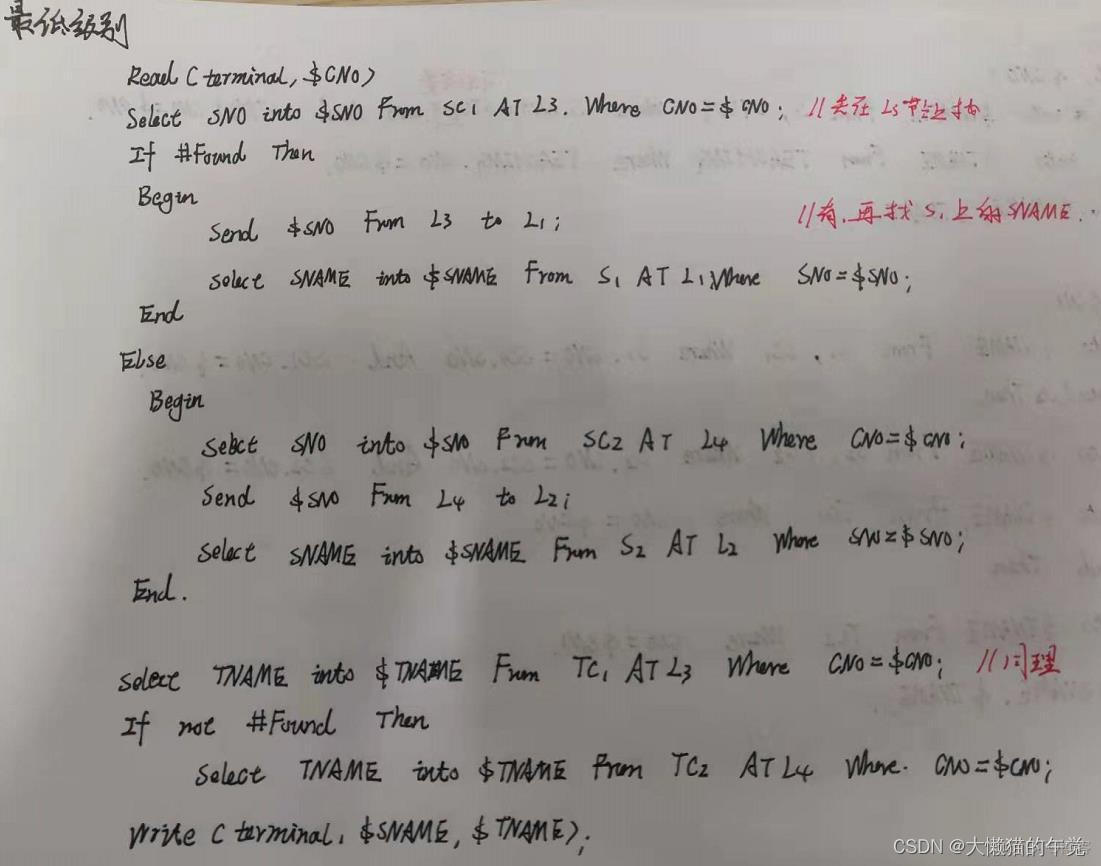 最低级别
Read C terminal, $CNO)
Select SNO into $SNO From SC1 AT L3. Where CNO=$CNO; //先在L3节点上找.
If #Found Then
Begin
Send $SNO From L3 to L1;
//有,再找S1上的SNAME.
select SNAME into $SNAME From S1 AT L1 Where SNO=$SNO;
End
Else
Begin
Select SNO into $SNO From SC2 AT L4 Where CNO=$CNO;
Send $SNO From L4 to L2;
Select SNAME into $SNAME From S2 AT L2 Where SNO=$SNO;
End.
select TNAME into $TNAME From TC1 AT L3 Where CNO=$CNO; //同理
If not #Found Then
Select TNAME into $TNAME From TC2 AT L4 Where. CNO=$CNO;
Write C terminal, $SNAME, $TNAME);
CSDN @大懒猫的午觉